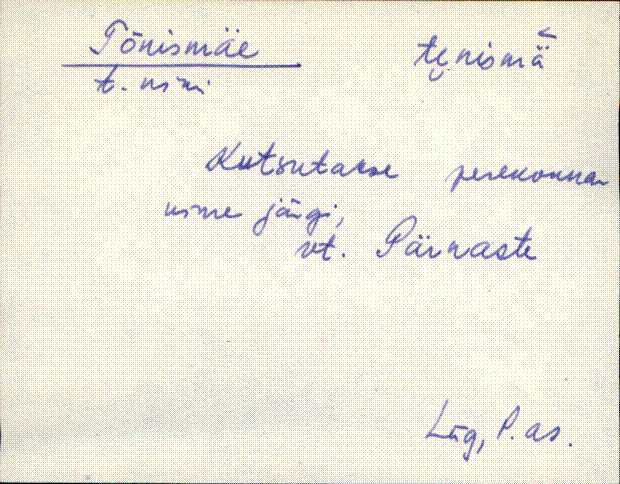 Tõnismäe tę̮nismä̆
t. nimi
Kutsutakse perekonna-
nime järgi,
vt. Pärnaste
Lüg, P. as.